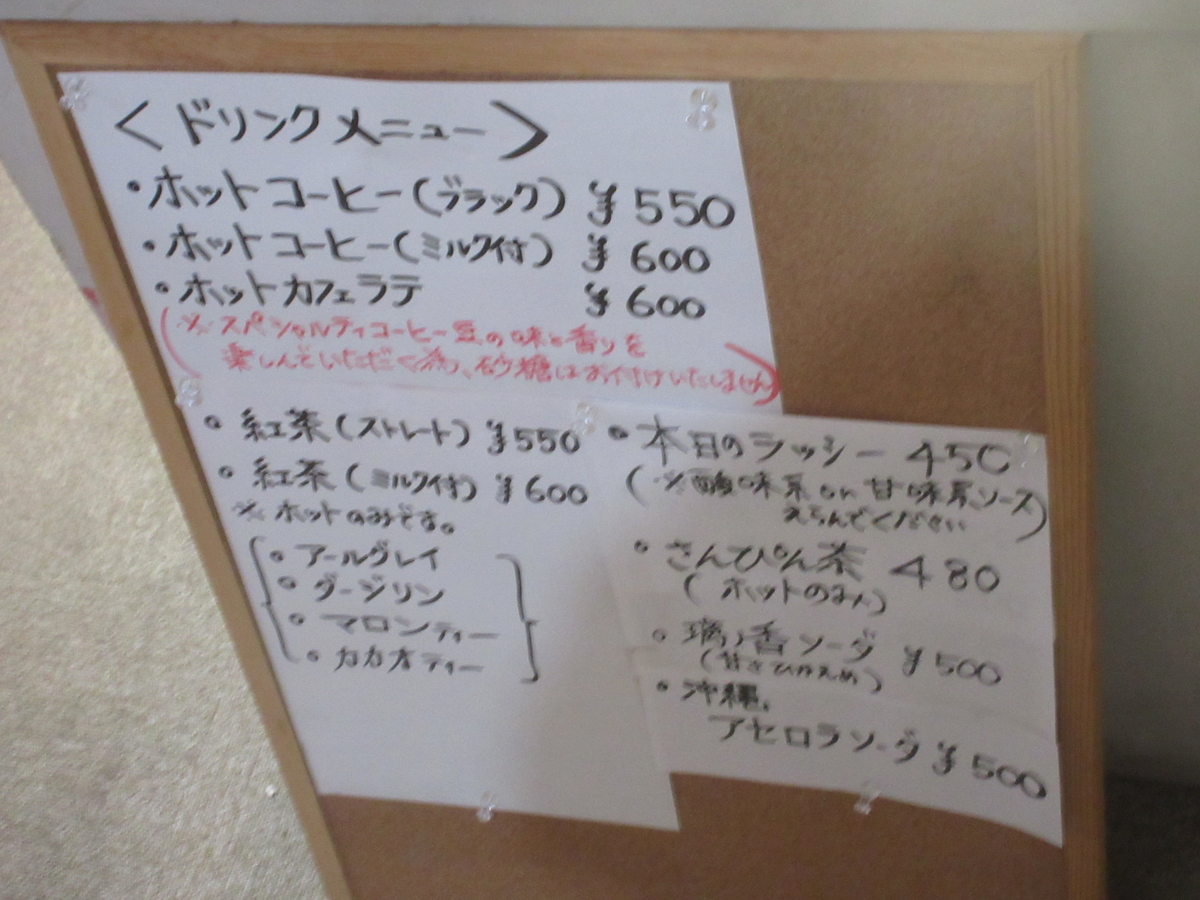 ＜ドリンクメニュー＞
・ホットコーヒー(ブラック) ¥550
・ホットコーヒー(ミルク付) ¥600
・ホットカフェラテ ¥600
(※スペシャルティコーヒー豆の味と香りを
楽しんでいただく為、砂糖はお付けいたしません)
・紅茶(ストレート) ¥550
・紅茶(ミルク付) ¥600
※ホットのみです。
・アールグレイ
・ダージリン
・マロンティー
・カカオティー
・本日のラッシー 450
(※酸味系or甘味系ソース
えらんでください)
・さんぴん茶 480
(ホットのみ)
・璃の香ソーダ ¥500
(甘さひかえめ)
・沖縄
アセロラソーダ ¥500